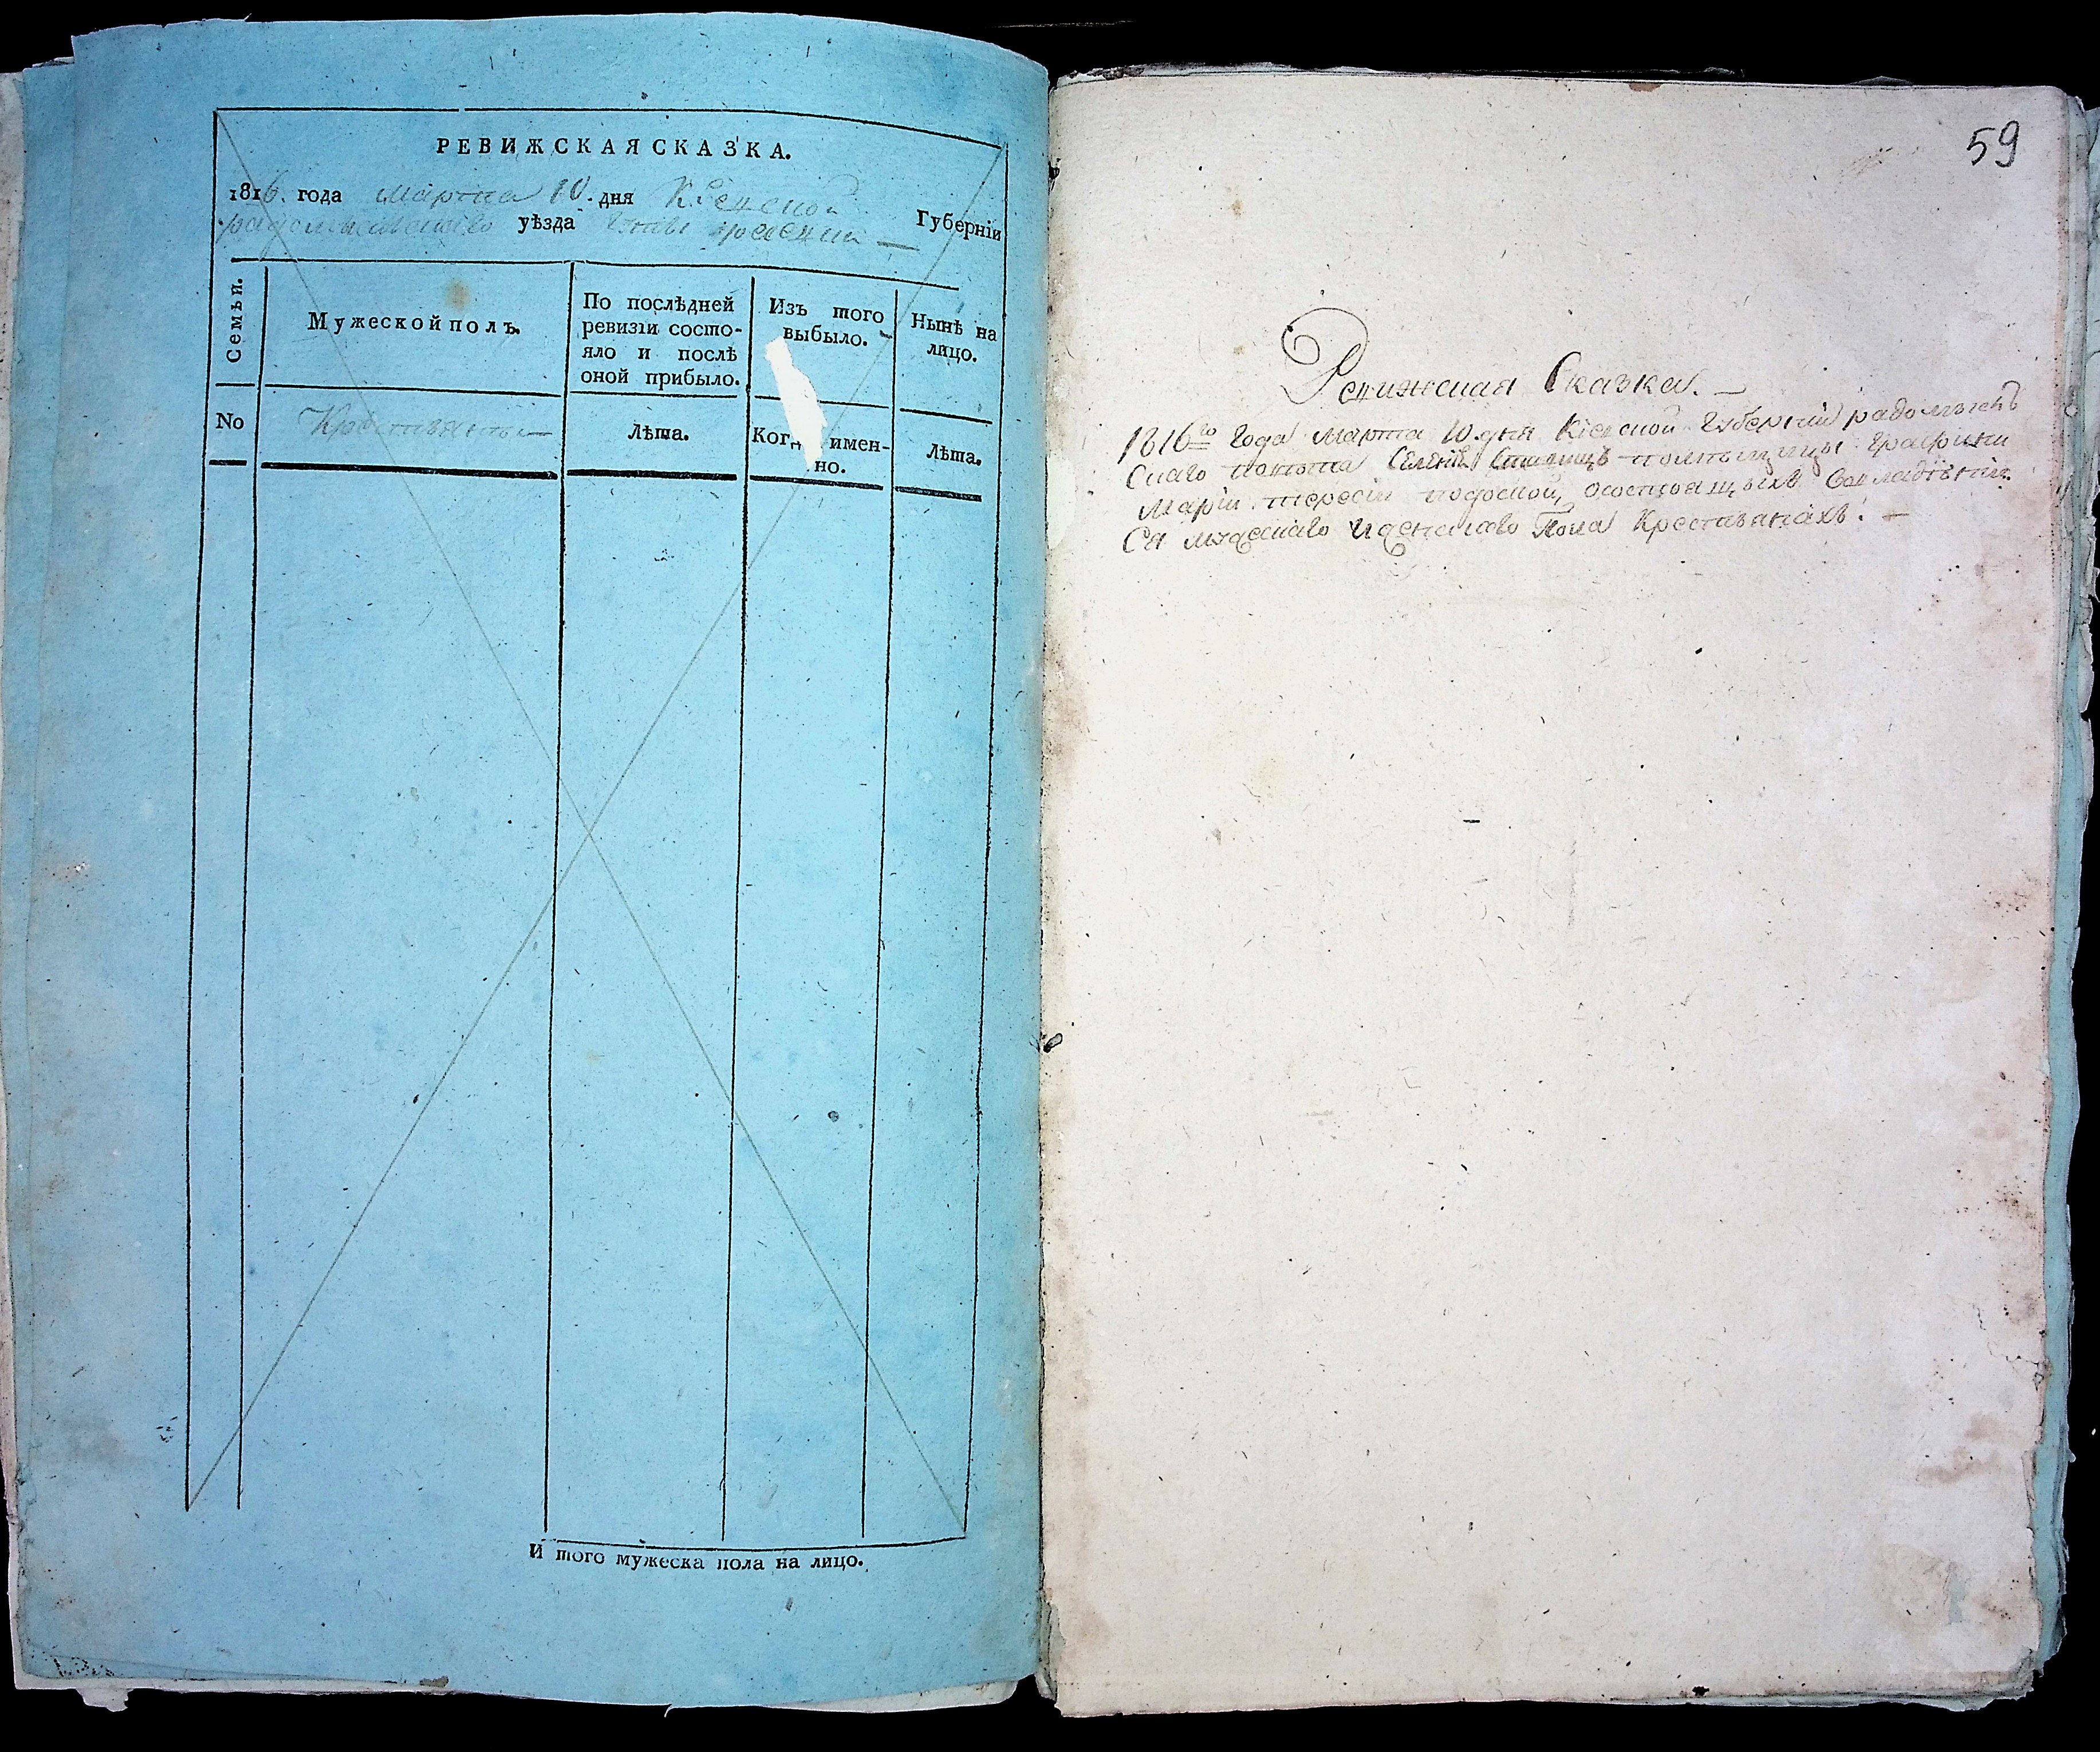 РЕВИЖСКАЯ СКАЗКА.
1816. года марта 10. дня Кіевской Губерніи
радомысльскаго уѣзда
Семьи.
Мужеской полъ.
По послѣдней
ревизіи состо-
яло и послѣ
оной прибыло.
Изъ того
выбыло.
Нынѣ на
лицо.
No
Крестьяны
Лѣта.
Когд имен-
но.
Лѣта.
И того мужеска пола на лицо.
59
Ревижская Сказка.
1816го Года Марта 10. дня Кіевской Губерніи радомысль
Скаго повѣта Селенія Ставищъ помѣщицы Графини
Маріи Тересіи, осостоящыхъ Вовладѣніи
Ея мужескаго иженскаго Пола Крестьянахъ.